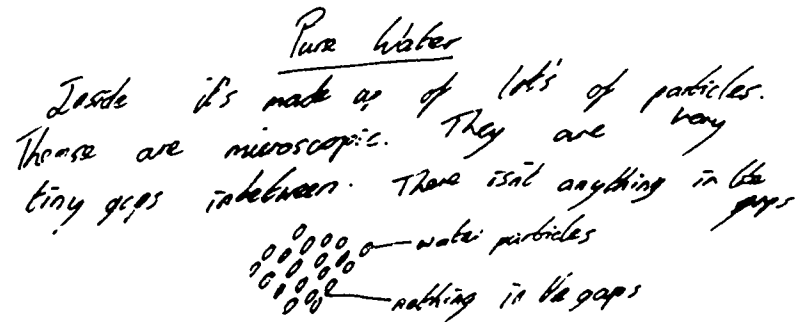 Pure Water
Inside it's made up of lot's of particles.
Thease are microscopic. They are very
tiny gaps inbetween. There isnt anything in the
gaps
water particles
nothing in the gaps